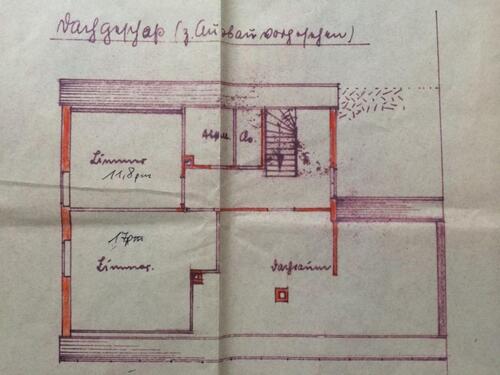 Dachgeschoß (z. Ausbau vorgesehen)
Zimmer
11,8qm
17qm
Zimmer.
Dachraum